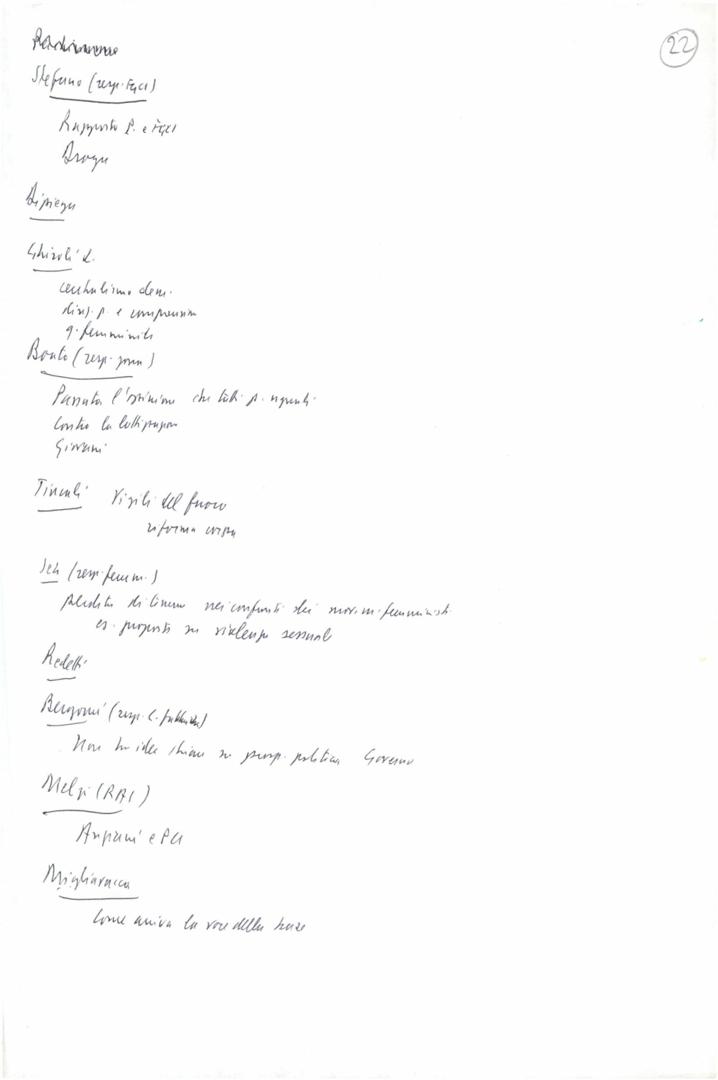 22
Stefano (resp. Fgci)
Rapporto P. e FGCI
Droga
Ghiroli L.
centralismo dem.
disj. p. e comprensor
q. femminile
Bonto (resp. prov.)
Passata l'opinione che tutti p. uguali
contro la lottizzazion
Giovani
Tincoli Vigili del fuoco
riforma corpo
(resp. femm.)
perdita di linea nei confronti dei movim. femministi
es. proposta su violenza sessuale
Redetti
Bergomi (resp. c. pubblica)
Non ha idee chiare su prosp. politica Governo
Melzi (RAI)
Anziani e PCI
Migliavacca
Come arriva la voce della base